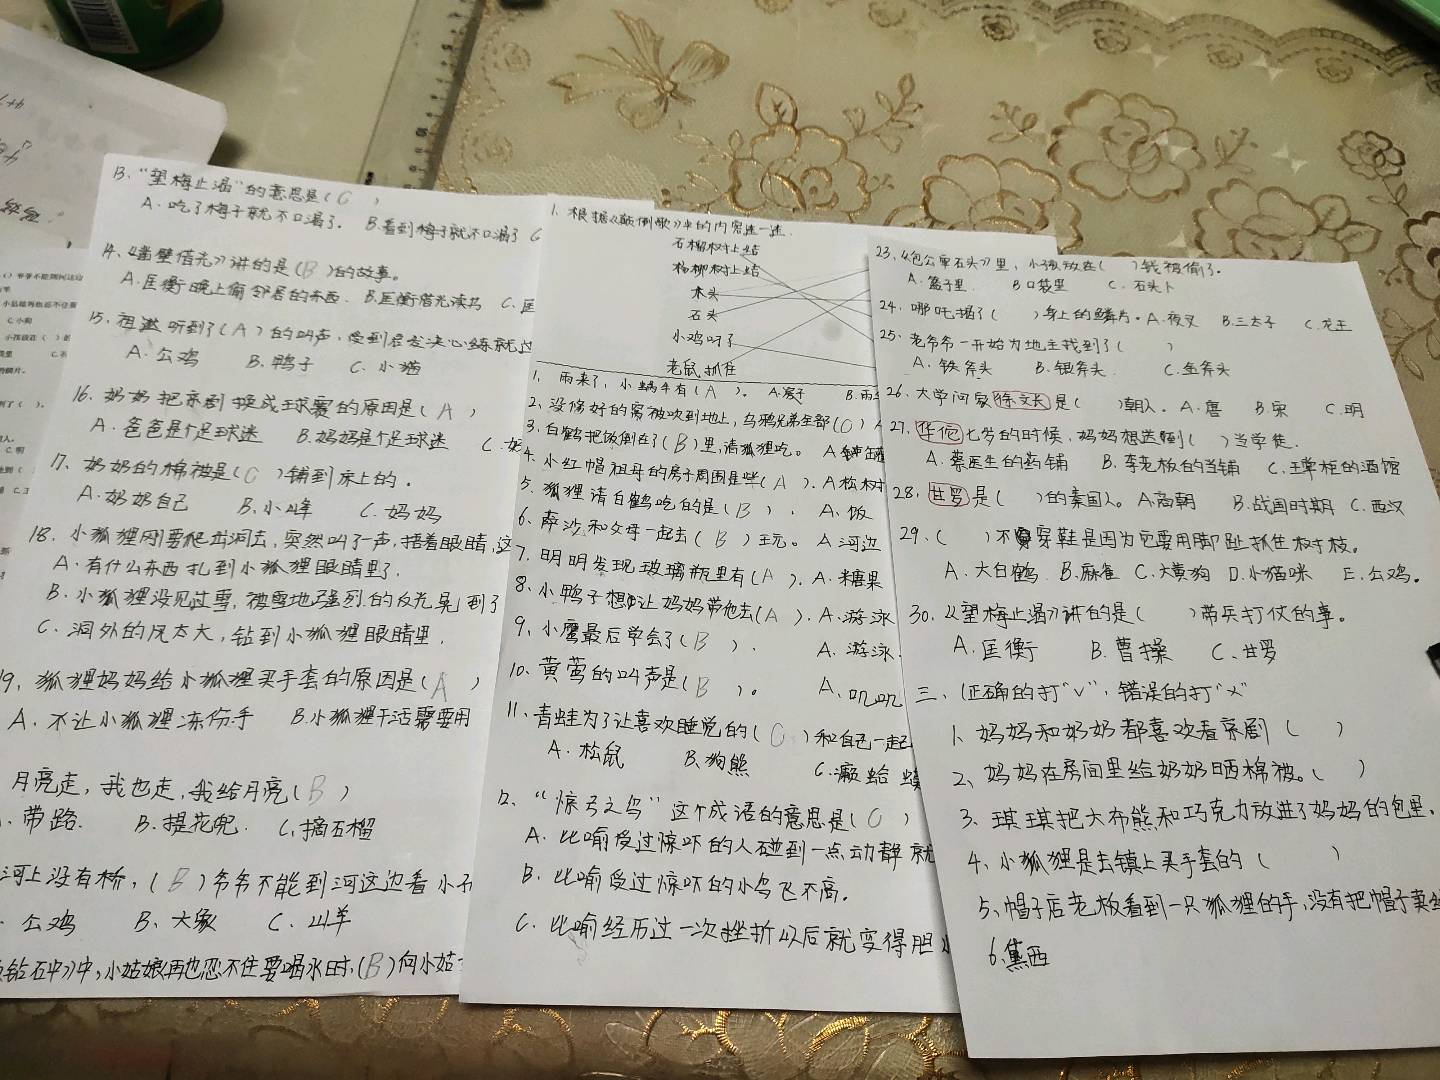 13、“望梅止渴”的意思是(C)
A.吃了梅子就不口渴了。 B.看到梅子就不口渴了 C
14、《凿壁借光》讲的是(B)的故事。
A.匡衡晚上偷邻居的东西. B.匡衡借光读书 C.匡
15、祖逖听到了(A)的叫声,受到启发决心练就过
A.公鸡 B.鸭子 C.小猫
16、奶奶把京剧换成球赛的原因是(A)
A.爸爸是个足球迷 B.妈妈是个足球迷 C.妈
17、奶奶的棉被是(C)铺到床上的.
A.奶奶自己 B.小峰 C.妈妈
18、小狐狸刚要爬出洞去,突然叫了一声,捂着眼睛,这
A.有什么东西扎到小狐狸眼睛里了.
B.小狐狸没见过雪,被雪地强烈的反光晃到了
C.洞外的风太大,钻到小狐狸眼睛里.
19、狐狸妈妈给小狐狸买手套的原因是(A)
A.不让小狐狸冻伤手 B.小狐狸干活需要用
月亮走,我也走,我给月亮(B)
带路. B.提花兜. C.摘石榴
河上没有桥,(B)爷爷不能到河这边看小孙
公鸡 B.大象 C.山羊
钻石中》中,小姑娘再也忍不住要喝水时,(B)向小姑
1.根据《颠倒歌》中的内容连一连.
石榴树上结
杨柳树上结
木头
石头
小鸡叼了
老鼠抓住
1、雨来了,小蜗牛有(A)。 A.房子 B.雨
2、没修好的窝被吹到地上,乌鸦兄弟全部(C)
3、白鹤把饭倒在了(B)里,请狐狸吃。
4、小红帽祖母的房子周围是些(A).A松树
5、狐狸请白鹤吃的是(B). A.饭
6、莎和父母一起去(B)玩。 A河边
7、明明发现玻璃瓶里有(A).A.糖果
8、小鸭子想让妈妈带他去(A).A.游泳
9、小鹰最后学会了(B). A.游泳.
10、黄莺的叫声是(B)。 A.叽叽
11、青蛙为了让喜欢睡觉的(C)和自己一起
A.松鼠 B.狗熊 C.癞蛤蟆
12、“惊弓之鸟”这个成语的意思是(C)
A.比喻受过惊吓的人碰到一点动静就
B.比喻受过惊吓的小鸟飞不高.
C.比喻经历过一次挫折以后就变得胆小
23、《包公审石头》里,小孩放在()钱被偷了.
A.篮子里. B口袋里 C.石头下
24、哪吒揭了()身上的鳞片。A.夜叉 B.三太子 C.龙王
25、老爷爷一开始为地主找到了()
A.铁斧头 B.银斧头 C.金斧头
26、大学问家徐文长是()朝人。A.唐 B.宋 C.明
27、华佗七岁的时候,妈妈想送他到()当学徒.
A.蔡医生的药铺 B.李老板的当铺 C.王掌柜的酒馆
28、甘罗是()的秦国人。A.高朝 B.战国时期 C.西汉
29、()不穿鞋是因为它要用脚趾抓住树枝。
A.大白鹤 B.麻雀 C.大黄狗 D.小猫咪 E.公鸡。
30、《望梅止渴》讲的是()带兵打仗的事。
A.匡衡 B.曹操 C.甘罗
三、正确的打“√”,错误的打“×”
1、妈妈和奶奶都喜欢看京剧()
2、妈妈在房间里给奶奶晒棉被。()
3、琪琪把大布熊和巧克力放进了妈妈的包里.
4、小狐狸是去镇上买手套的()
5、帽子店老板看到一只狐狸的手,没有把帽子卖给